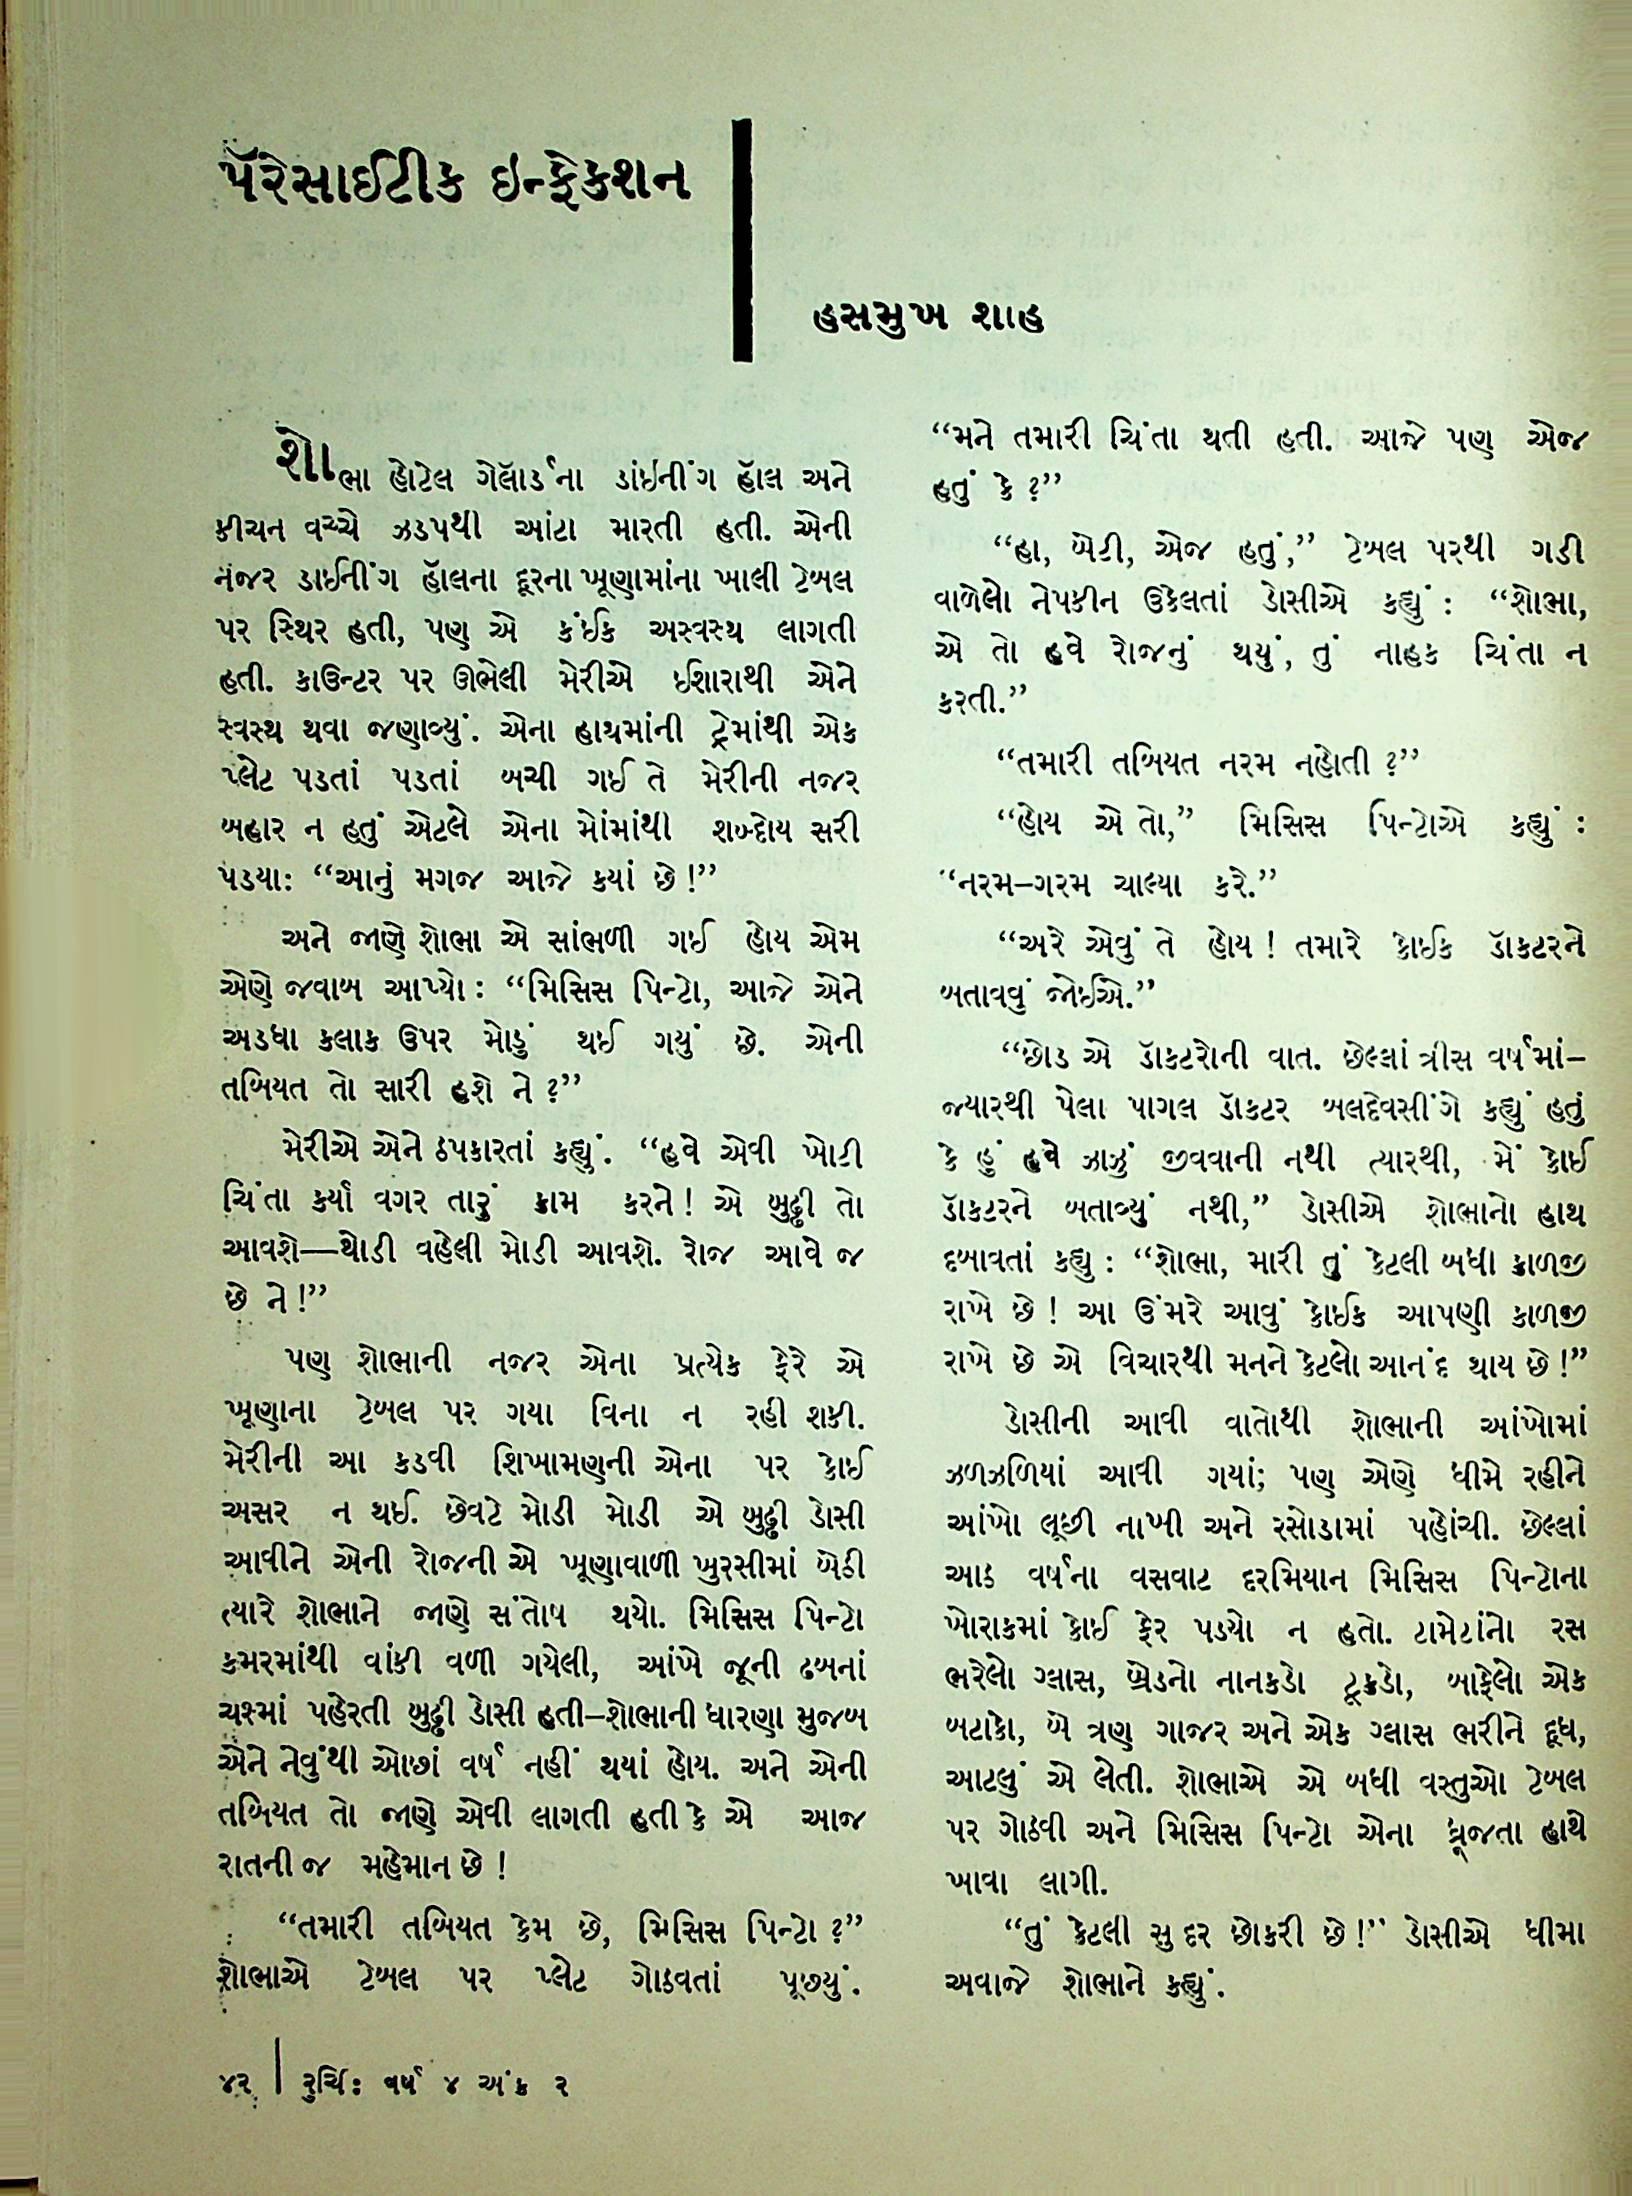 પૅરેસાઈટીક ઇન્ફેકશન
હસમુખ શાહ
શોભા હોટેલ ગેલૉર્ડના ડાંઇનીંગ હૉલ અને
કીચન વચ્ચે ઝડપથી આંટા મારતી હતી. એની
નજર ડાઈનીંગ હૉલના દૂરના ખૂણામાંના ખાલી ટેબલ
પર સ્થિર હતી, પણ એ કંઈક અસ્વસ્થ લાગતી
હતી. કાઉન્ટર પર ઊભેલી મેરીએ ઈશારાથી એને
સ્વસ્થ થવા જણાવ્યું. એના હાથમાંની ટ્રેમાંથી એક
પ્લેટ પડતાં પડતાં બચી ગઈ તે મેરીની નજર
બહાર ન હતું એટલે એના મોંમાંથી શબ્દોય સરી
પડયા: “આનું મગજ આજે કયાં છે!”
અને જાણે શોભા એ સાંભળી ગઈ હોય એમ
એણે જવાબ આપ્યો: “મિસિસ પિન્ટો, આજે એને
અડધા કલાક ઉપર મોડું થઈ ગયું છે. એની
તબિયત તો સારી હશે ને?”
મેરીએ એને ઠપકારતાં કહ્યું. “હવે એવી ખોટી
ચિંતા કર્યા વગર તારું કામ કરને! એ બુઢ્ઢી તો
આવશે—થોડી વહેલી મોડી આવશે. રોજ આવે જ
છે ને!”
પણ શોભાની નજર એના પ્રત્યેક ફેરે એ
ખૂણાના ટેબલ પર ગયા વિના ન રહી શકી.
મેરીની આ કડવી શિખામણની એના પર કોઈ
અસર ન થઈ. છેવટે મોડી મોડી એ બુઢ્ઢી ડોસી
આવીને એની રોજની એ ખૂણાવાળી ખુરસીમાં બેઠી
ત્યારે શોભાને જાણે સંતોષ થયો. મિસિસ પિન્ટો
કમરમાંથી વાંકી વળી ગયેલી, આંખે જૂની ઢબનાં
ચશ્માં પહેરતી બુઢ્ઢી ડોસી હતી–શોભાની ધારણા મુજબ
એને નેવુંથી ઓછાં વર્ષ નહીં થયાં હોય. અને એની
તબિયત તો જાણે એવી લાગતી હતી કે એ આજ
રાતની જ મહેમાન છે!
“તમારી તબિયત કેમ છે, મિસિસ પિન્ટો?”
શોભાએ ટેબલ પર પ્લેટ ગોઠવતાં પૂછયું.
“મને તમારી ચિંતા થતી હતી. આજે પણ એજ
હતું કે?”
“હા, બેટી, એજ હતું,” ટેબલ પરથી ગડી
વાળેલો નેપકીન ઉકેલતાં ડોસીએ કહ્યું: “શોભા,
એ તો હવે રોજનું થયું, તું નાહક ચિંતા ન
કરતી.”
“તમારી તબિયત નરમ નહોતી?”
“હોય એ તો,” મિસિસ પિન્ટોએ કહ્યું:
“નરમ–ગરમ ચાલ્યા કરે.”
“અરે એવું તે હોય! તમારે કોઈક ડૉકટરને
બતાવવું જોઈએ.”
“છોડ એ ડૉકટરોની વાત. છેલ્લાં ત્રીસ વર્ષમાં–
જ્યારથી પેલા પાગલ ડૉકટર બલદેવસીંગે કહ્યું હતું
કે હું હવે ઝાઝું જીવવાની નથી ત્યારથી, મેં કોઈ
ડૉકટરને બતાવ્યું નથી,” ડોસીએ શોભાનો હાથ
દબાવતાં કહ્યુ: “શોભા, મારી તું કેટલી બધી કાળજી
રાખે છે! આ ઉંમરે આવું કોઈક આપણી કાળજી
રાખે છે એ વિચારથી મનને કેટલો આનંદ થાય છે!”
ડોસીની આવી વાતોથી શોભાની આંખોમાં
ઝળઝળિયાં આવી ગયાં; પણ એણે ધીમે રહીને
આંખો લૂછી નાખી અને રસોડામાં પહોંચી. છેલ્લાં
આઠ વર્ષના વસવાટ દરમિયાન મિસિસ પિન્ટોના
ખોરાકમાં કોઈ ફેર પડયો ન હતો. ટામેટાંનો રસ
ભરેલો ગ્લાસ, બ્રેડનો નાનકડો ટૂકડો, બાફેલો એક
બટાકો, બે ત્રણ ગાજર અને એક ગ્લાસ ભરીને દૂધ,
આટલું એ લેતી. શોભાએ એ બધી વસ્તુઓ ટેબલ
પર ગોઠવી અને મિસિસ પિન્ટો એના ધ્રૂજતા હાથે
ખાવા લાગી.
“તું કેટલી સુદર છોકરી છે!” ડોસીએ ધીમા
અવાજે શોભાને કહ્યું.
૪૨ | રુચિ: વર્ષ ૪ અંક ૨